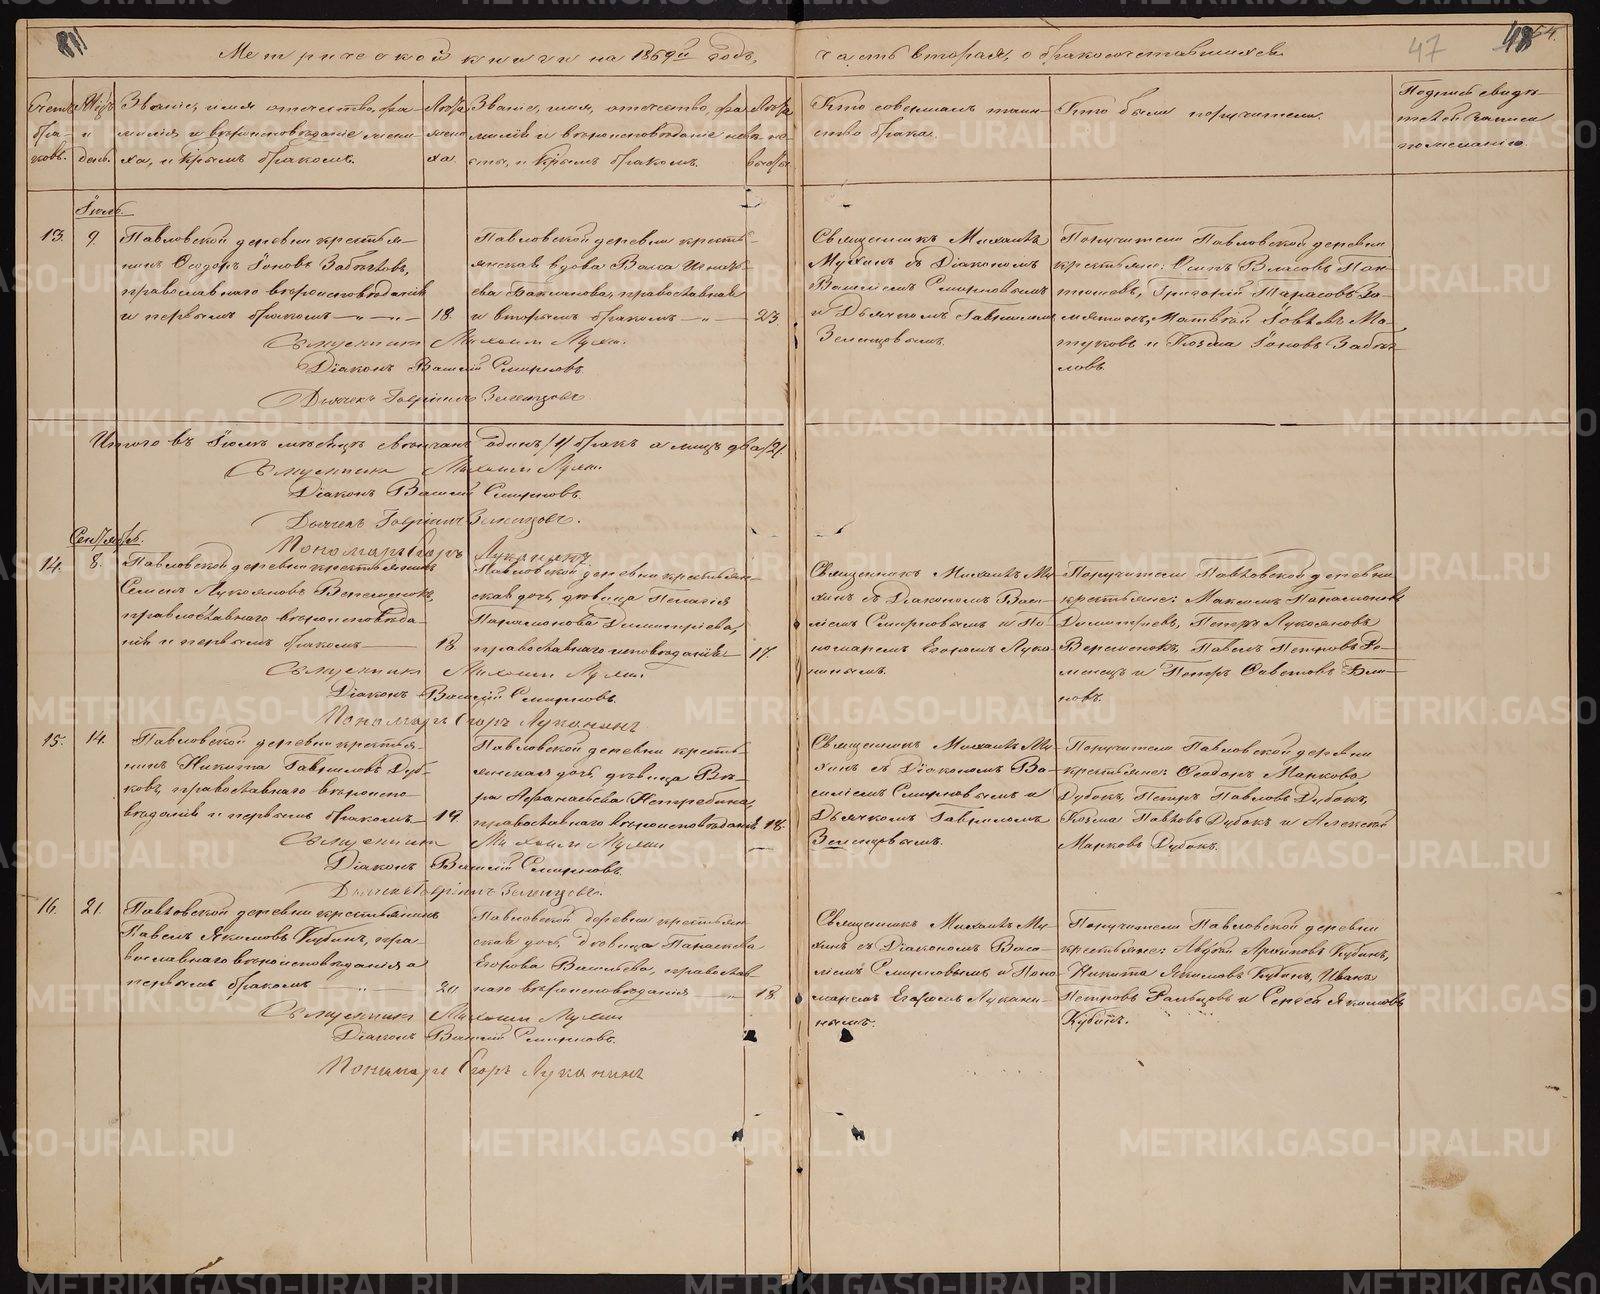 Метрической книги на 1869й годъ,
часть вторая, о бракосочетавшихся.
47
48
Счетъ бра-ковъ.
и день.
Званіе, имя, отечество, фа-
милія и вѣроисповѣданіе жени-
ха, и которымъ бракомъ.
Лѣта жениха.
Званіе, имя, отечество, фа-
милія и вѣроисповѣданіе невѣ-
сты, и которымъ бракомъ.
Лѣта невѣсты.
Кто совершалъ таин-
ство брака.
Кто были поручители.
Подписи свидѣ-
телей записи
по желанію.
Іюль.
13.
9.
Павловской деревни крестья-
нинъ Ѳеодоръ Іоновъ
православнаго вѣроисповѣданія
и первымъ бракомъ
18.
Павловской деревни кресть-
янская вдова
православная
и вторымъ бракомъ
23.
Священникъ Михаилъ
Мухинъ съ Діакономъ
Василіемъ Смирновымъ
и Дьячкомъ Гавріиломъ
Зеленцовымъ.
Поручители Павловской деревни
крестьяне: Осипъ Власовъ Пан-
тюшевъ, Григорій Тарасовъ За-
мятинъ, Матвей Іовлевъ Ма-
туковъ и Козма Іоновъ
ловъ
Священникъ Михаилъ Мухинъ
Діаконъ Василій Смирновъ
Дьячекъ Гавріилъ Зеленцовъ
Итого въ Іюлѣ мѣсяцѣ вѣнчанъ одинъ /1/ бракъ а лицъ два /2/.
Священникъ Михаилъ Мухинъ
Діаконъ Василій Смирновъ.
Дьячекъ Гавріилъ Зеленцовъ.
Пономарь Егоръ Луканинъ
Сентябрь.
14.
8.
Павловской деревни крестьянинъ
Семенъ Лукояновъ Веременокъ,
православнаго вѣроисповѣда-
нія и первымъ бракомъ
18.
Павловской деревни крестьян-
ская дочь, дѣвица Пелагія
Парамонова Димитріева,
православнаго исповѣданія
17.
Священникъ Михаилъ Му-
хинъ съ Діакономъ Васи-
ліемъ Смирновымъ и По-
номаремъ Егоромъ Лука-
нинымъ.
Поручители Павловской деревни
крестьяне: Максимъ Парамоновъ
Димитріевъ, Петръ Лукояновъ
Веременокъ, Павелъ Петровъ Ро-
манецъ и Петръ Саветовъ Бли-
новъ.
Священникъ Михаилъ Мухинъ
Діаконъ Василій Смирновъ.
Пономарь Егоръ Луканинъ
15.
14.
Павловской деревни крестья-
нинъ Никита Гавриловъ Дуб-
ковъ, православнаго вѣроиспо-
вѣданія и первымъ бракомъ
19.
Павловской деревни кресть-
янская дочь, дѣвица Вѣ-
ра Аѳанасьева Непребина,
православнаго вѣроисповѣданія
18.
Священникъ Михаилъ Му-
хинъ съ Діакономъ Ва-
силіемъ Смирновымъ и
Дьячкомъ Гавріиломъ
Зеленцовымъ.
Поручители Павловской деревни
крестьяне: Ѳеодоръ Марковъ
Дубокъ, Петръ Павловъ Дубокъ,
Козма Павловъ Дубокъ и Алексей
Марковъ Дубокъ.
Священникъ Михаилъ Мухинъ
Діаконъ Василій Смирновъ.
Дьячекъ Гавріилъ Зеленцовъ.
16.
21.
Павловской деревни крестьянинъ
Павелъ Якимовъ Кубинъ, пра-
вославнаго вѣроисповѣданія и
первымъ бракомъ
20
Павловской деревни крестьян-
ская дочь, дѣвица Параскева
Егорова Васильева, православ-
наго вѣроисповѣданія
18.
Священникъ Михаилъ Му-
хинъ съ Діакономъ Васи-
ліемъ Смирновымъ и Поно-
маремъ Егоромъ Лукани-
нымъ.
Поручители Павловской деревни
крестьяне: Авдей Архиповъ Кубинъ,
Никита Якимовъ Кубинъ, Иванъ
Петровъ Ральцовъ и Сергей Якимовъ
Кубинъ.
Священникъ Михаилъ Мухинъ
Діаконъ Василій Смирновъ.
Пономарь Егоръ Луканинъ
METRIKI.GASO-URAL.RU